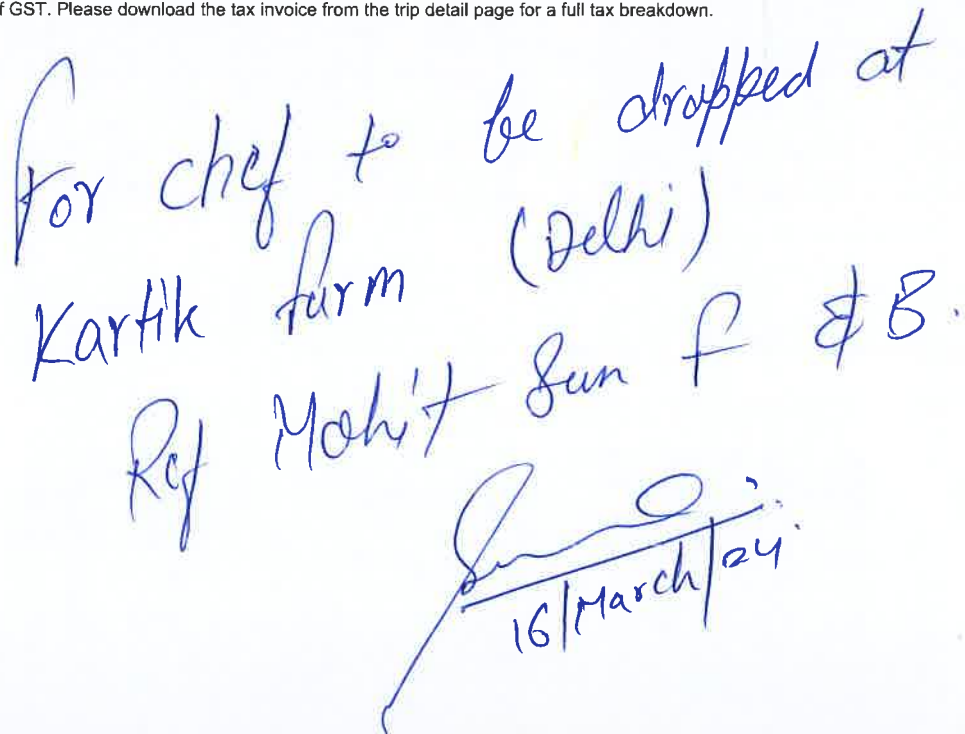 f GST. Please download the tax invoice from the trip detail page for a full tax breakdown.
For chef to be dropped at
Kartik farm (Delhi)
Ref Mohit Sun F & B.
16/March/24